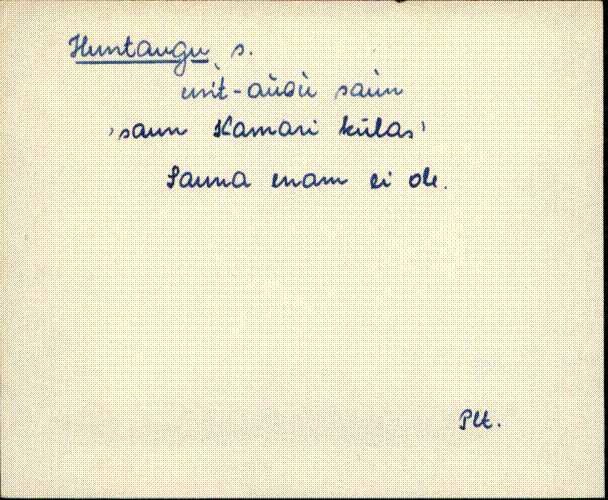 Huntaugu s.
unt-aùGù saùn
'saun Kamari külas'
Sauna enam ei ole.
Plt.